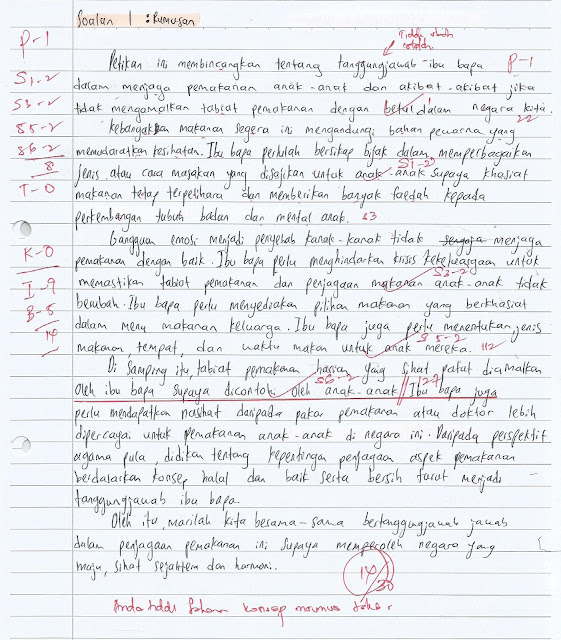 Soalan 1 : Rumusan
P-1
Petikan ini membincangkan tentang tanggungjawab ibu bapa P-1
S1-2 dalam menjaga pemakanan anak-anak dan akibat-akibat jika
S3-2 tidak mengamalkan tabiat pemakanan dengan betul dalam negara kita. 22
S5-2 Kebanyakkan makanan segera ini mengandungi bahan pewarna yang
S6-2 memudaratkan kesihatan. Ibu bapa perlulah bersikap bijak dalam memperbagaikan
8 S1-2
jenis atau cara masakan yang disajikan untuk anak-anak supaya khasiat
T-0 makanan tetap terpelihara dan memberikan banyak faedah kepada
perkembangan tubuh badan dan mental anak. 53
Gangguan emosi menjadi penyebab kanak-kanak tidak sengaja menjaga
K-0 pemakanan dengan baik. Ibu bapa perlu menghindarkan krisis kekeluargaan untuk
I-9 S3-2
memastikan tabiat pemakanan dan penjagaan makanan anak-anak tidak
B-5 berubah. Ibu bapa perlu menyediakan pilihan makanan yang berkhasiat
14 dalam menu makanan keluarga. Ibu bapa juga perlu menentukan jenis
S5-2
makanan, tempat, dan waktu makan untuk anak mereka. 112
Di samping itu, tabiat pemakanan harian yang sihat patut diamalkan
S6-2 127
oleh ibu bapa supaya dicontohi oleh anak-anak // Ibu bapa juga
perlu mendapatkan nasihat daripada pakar pemakanan atau doktor lebih
dipercayai untuk pemakanan anak-anak di negara ini. Daripada perspektif
agama pula, didikan tentang kepentingan penjagaan aspek pemakanan
berdasarkan konsep halal dan baik serta bersih turut menjadi
tanggungjawab ibu bapa.
Oleh itu, marilah kita besama-sama bertanggungjawab jawab
dalam penjagaan pemakanan ini supaya memperoleh negara yang
maju, sihat sejahtera dan harmoni.
14/30
Anda tiada fahaman konsep